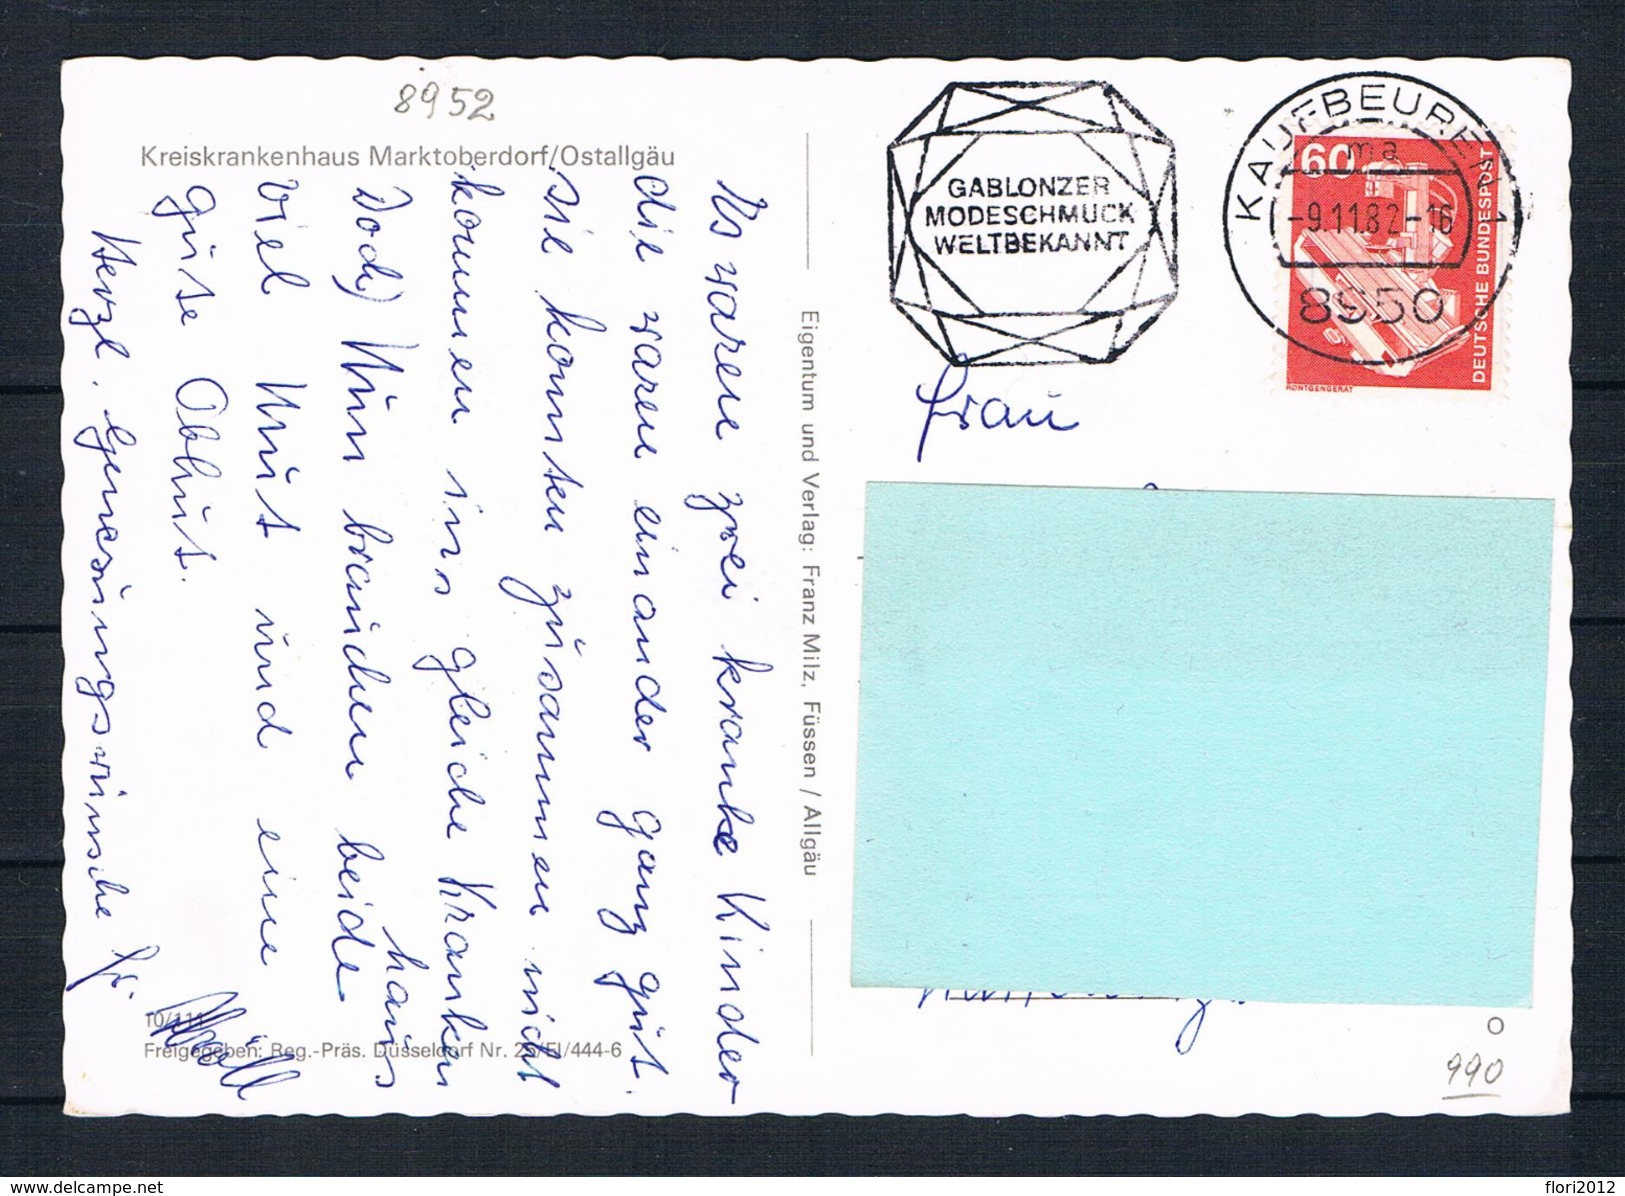 8952
Kreiskrankenhaus Marktoberdorf/Ostallgäu
Es waren zwei kranke Kinder
die waren einander ganz gut.
sie konnten zusammen nicht
kommen ins gleiche Kranken
haus
Doch) Nun brauchen beide
viel Mut und eine
gute Obhut.
Herzl. Genesungswünsche
10/111
Freigegeben: Reg.-Präs. Düsseldorf Nr. 25/El/444-6
Eigentum und Verlag: Franz Milz, Füssen / Allgäu
GABLONZER
MODESCHMUCK
WELTBEKANNT
KAUFBEUREN 1
ma
-9.11.82-16
8950
60
DEUTSCHE BUNDESPOST
RÖNTGENGERÄT
Frau
990
www.delcampe.net
flori2012